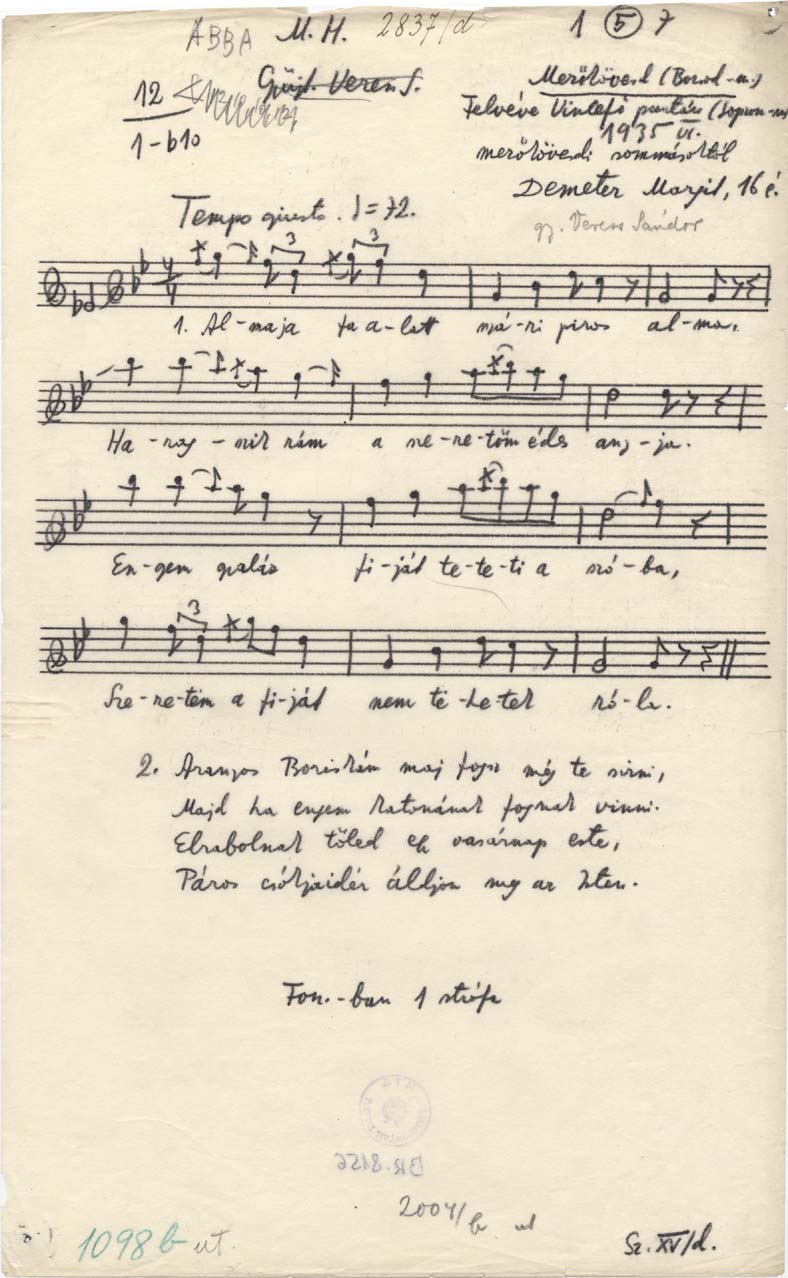 ABBA M. H. 2837/d 1 5 7
12 Gyüjt. Veress S. Mezőkövesd (Borod-m.)
Felvéve Vinlefő pusztán (Sopron-m)
1-b10 1935 VI.
mezőkövesdi sommásoktól
Demeter Margit, 16 é.
Tempo giusto. ♩=72.
gy. Veress Sándor
1. Al-maja fa a-latt nyá-ri piros al-ma,
Ha-rag-szik rám a sze-re-tőm édes any-ja.
En-gem szalás fi-ját te-te-ti a szó-ba,
Sze-re-tem a fi-ját nem te-he-tek ró-la.
2. Aranyos Boriskám maj fogsz még te sirni,
Majd ha engem katonának fognak vinni.
Elrabolnak tőled eh vasárnap este,
Páros csókjaidér áldjon meg az Isten.
Fon.-ban 1 strófa
BR.8156
2004/b ut
1098 b ut. Sz. XV/d.